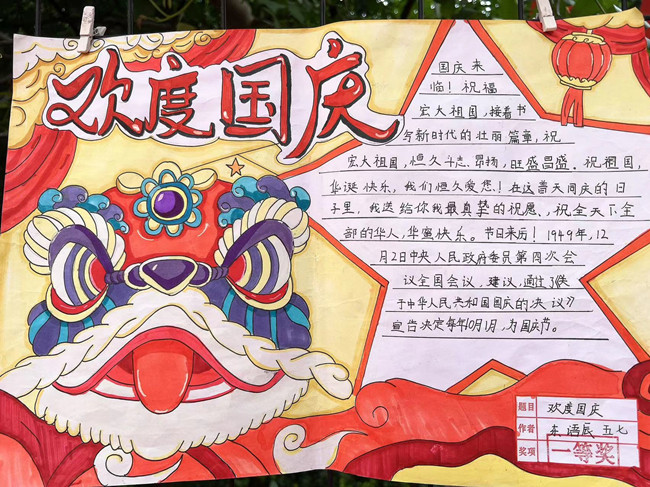 欢度国庆
国庆来
临！祝福
宏大祖国，接着书
写新时代的壮丽篇章，祝
宏大祖国，恒久斗志昂扬，旺盛昌盛。祝祖国，
华诞快乐，我们恒久爱您！在这普天同庆的日
子里，我送给你我最真挚的祝愿、，祝全天下全
部的华人，华蜜快乐。节日来历！1949年，12
月2日中央人民政府委员第四次会
议全国会议，建议，通过了《关
于中华人民共和国国庆的决议》
宣告决定每年10月1日，为国庆节。
题目 欢度国庆
作者 五七
奖项 一等奖